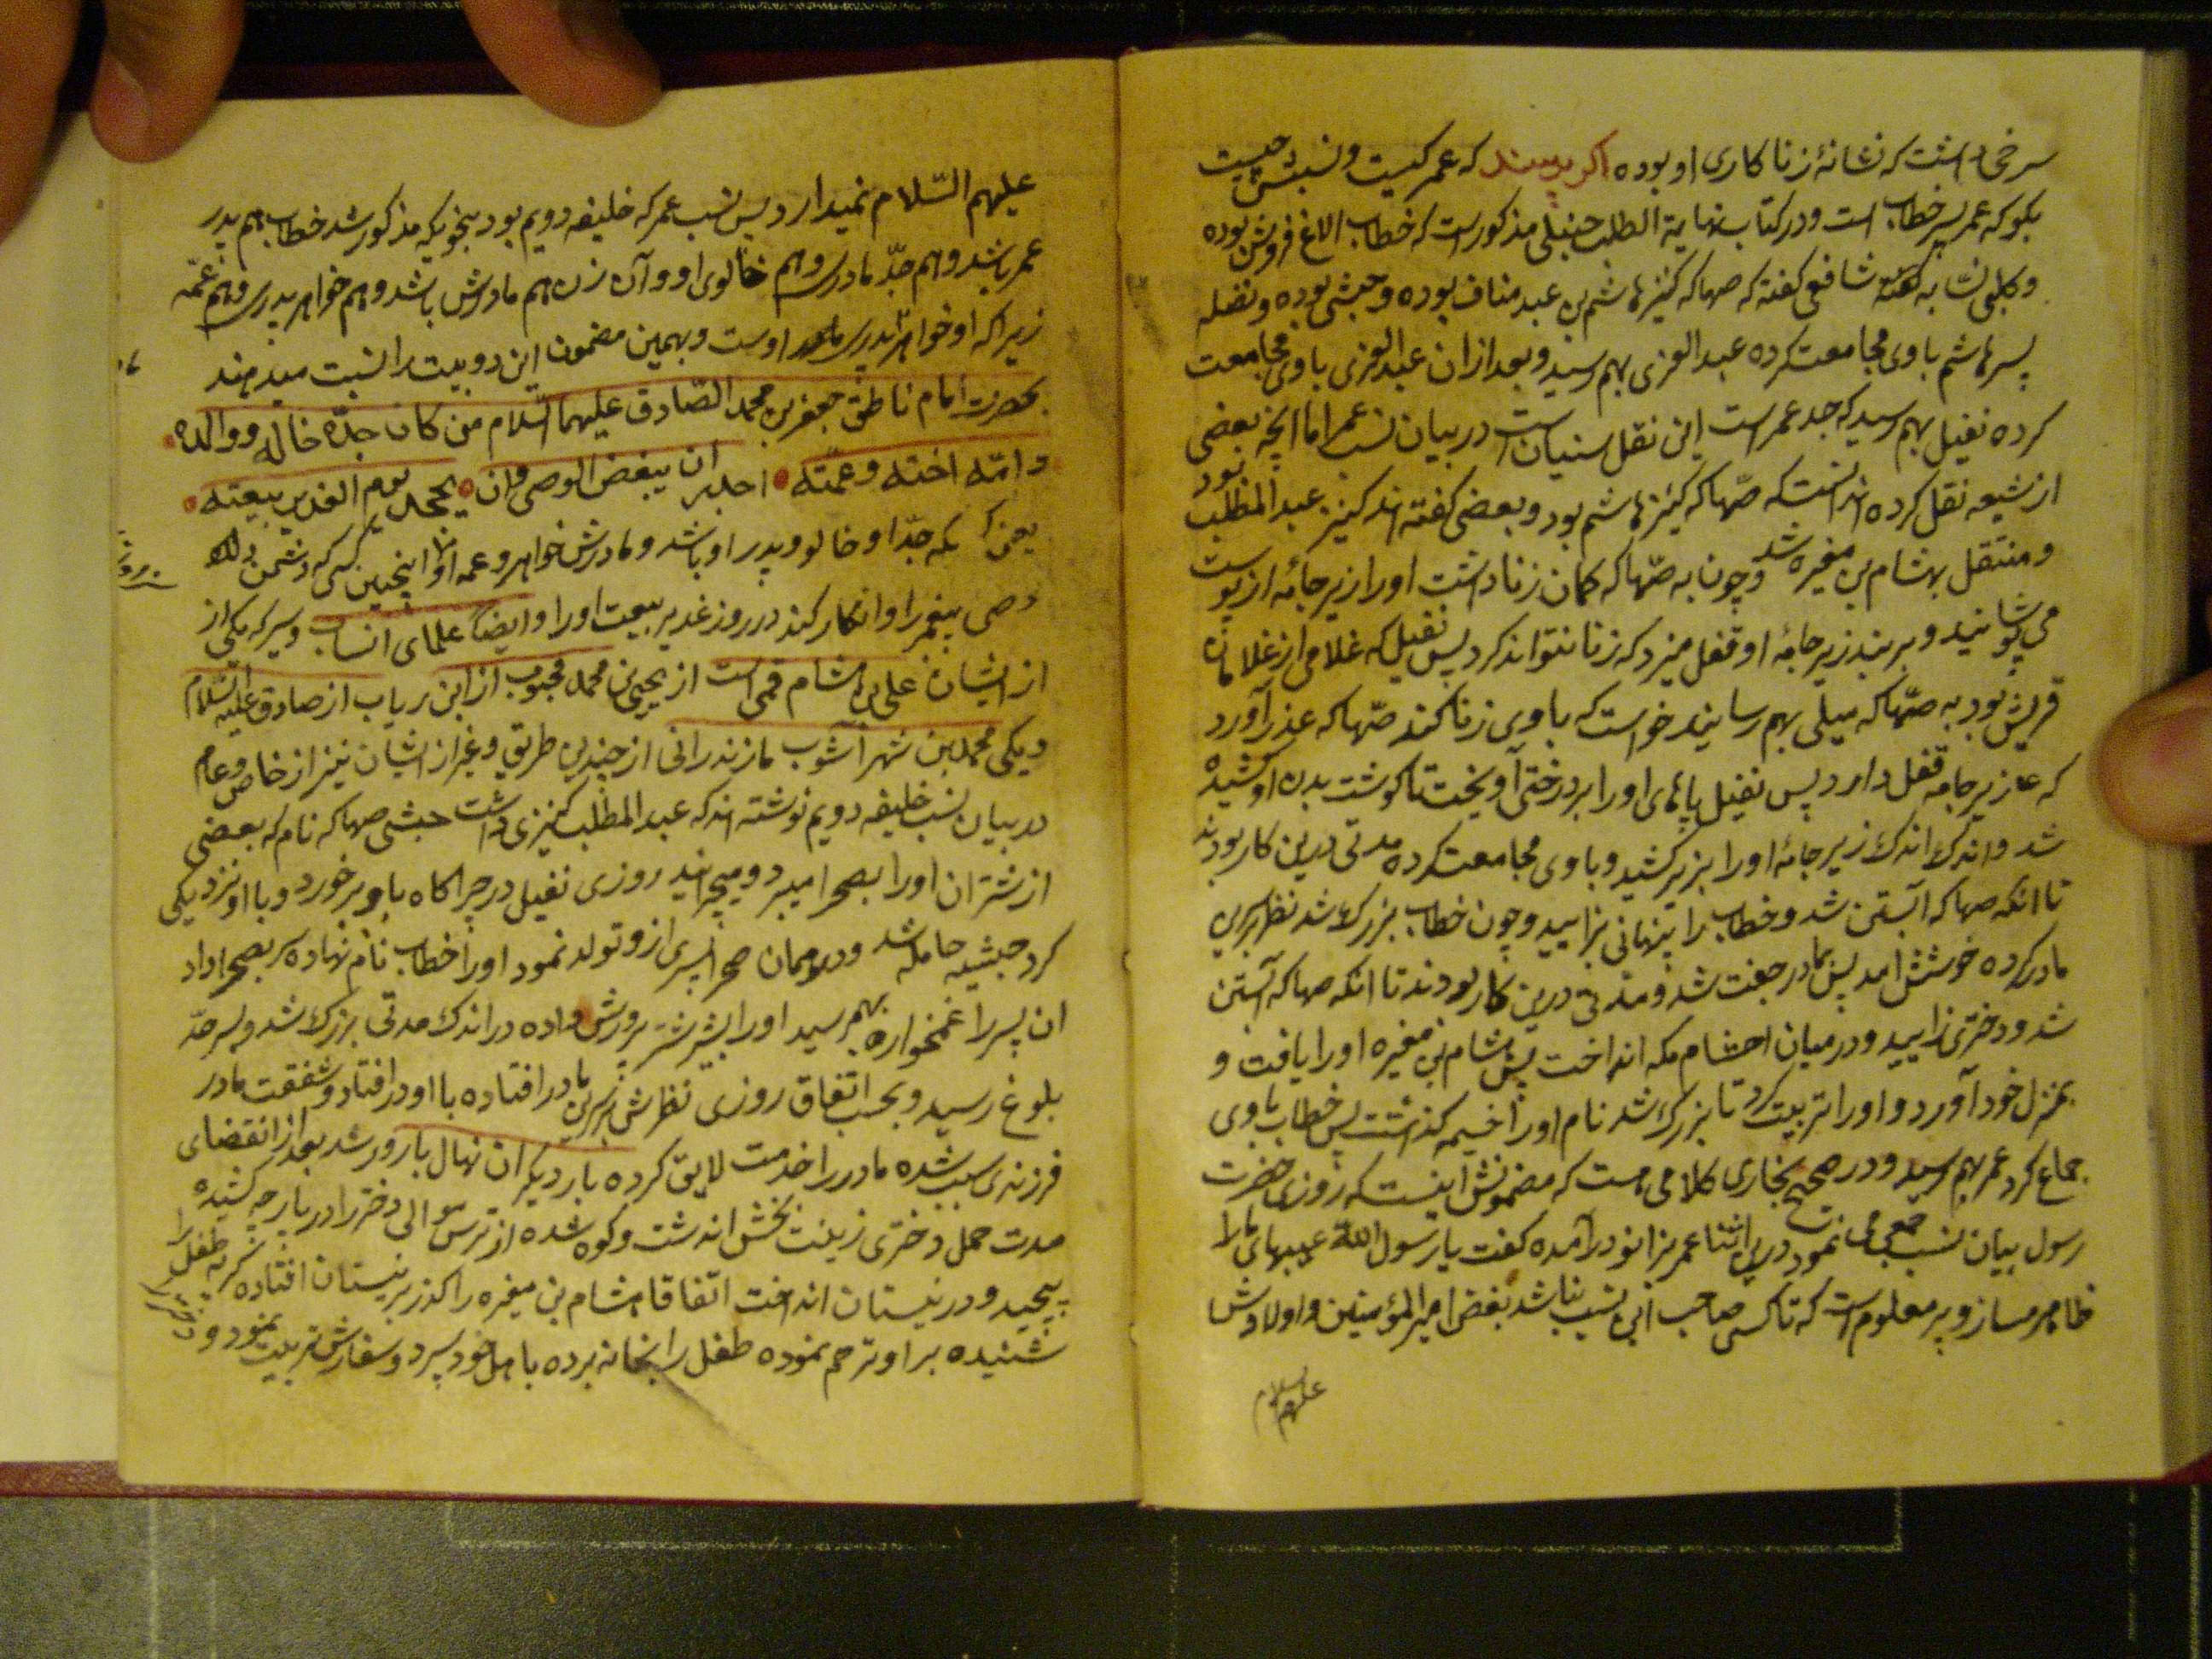 سرخی داشت که نشانهٔ زنا کاری او بوده اکر پرسند که عمر کیست و نسبش چیست
بکو که عمر پسر خطاب است و در کتاب نهایة الطلب حنبلی مذکور است که خطاب الاغ فروش بوده
و کلبی شافعی کفته که صهاکه کنیز هاشم بن عبد مناف بوده و حبشی بوده و نضله
پسر هاشم با وی مجامعت کرده عبد العزی بهم رسید و بعد از ان عبد العزی با وی مجامعت
کرده نفیل بهم رسید که جد عمر است این نقل سنیان است در بیان نسب عمر اما انچه بعضی
از شیعه نقل کرده اند انست که صهاکه کنیز هاشم بود و بعضی کفته اند کنیز عبد المطلب بود
و منتقل بهشام بن مغیره شد و چون به صهاکه کمان زنا داشت او را زیر جامهٔ از پوست
می پوشانید و بر بند زیر جامهٔ او قفل میزد که زنا نتواند کرد پس نفیل که غلامی از غلامان
قریش بود به صهاکه میلی بهم رسانید خواست که با وی زنا کند صهاکه عذر آورد
که زیر جامه قفل دارد پس نفیل پاهای او را بر درختی آویخت تا کوشت بدن او کشیده
شد و اندک اندک زیر جامهٔ او را بزیر کشید و با وی مجامعت کرده مدتی درین کار بودند
تا انکه صهاکه آبستن شد و خطاب را پنهانی زایید و چون خطاب بزرک شد نظر برین
مادر کرده خوشش امد پس بمادر جفت شد و مدتی درین کار بودند تا انکه صهاکه آبستن
شد و دختری زایید و در میان احشام مکه انداخت پس هشام بن مغیره او را یافت و
بمنزل خود آورد و او را تربیت کرد تا بزرک شد نام او را خیسمه کذاشت پس خطاب با وی
جماع کرد عمر بهم رسید و در صحیح بخاری کلامی هست که مضمونش اینست که روزی حضرت
رسول بیان نسب جمعی می نمود درین اثنا عمر بزانو درآمده کفت یا رسول الله عیبهای ما را
ظاهر مساز و پر معلوم است که تا کسی صاحب این نسب نباشد بغض امیر المؤمنین و اولادش
علیهم السلام
علیهم السّلام نمیدارد پس نسب عمر که خلیفه دویم بود بنحویکه مذکور شد خطاب هم پدر
عمر باشد و هم جدّ مادرس و هم خالوی او و آن زن هم مادرش باشد و هم خواهر پدرس و هم عمّه
زیرا که او خواهر پدری اوست و بهمین مضمون این دو بیت را نسبت میدهند
بحضرت امام ناطق جعفر بن محمد الصّادق علیهما السّلام من کان جدّه خاله و والده
و امّه اخته و عمّته اجدر ان یبغض الوصی و ان یجحد یوم الغدیر بیعته
یعنی جدّ او خالو و پدر او باشد و مادرش خواهر و عمه او کسی که دشمن دارد
وصی پیغمبر را و انکار کند در روز غدیر بیعت او را و ایضاً علمای انساب و سیر که یکی از
از ایشان علی بن هشام قمی است از یحیی بن محمد محبوب از ابن ریاب از صادق علیه السّلام
و یکی محمد بن شهر آشوب مازندرانی از چندین طریق و غیر از ایشان نیز از خاص و عام
در بیان نسب خلیفه دویم نوشته اند که عبد المطلب کنیزی داشت حبشی صهاکه نام که بعضی
از شتران او را بصحرا میبرد و میچرانید روزی نفیل در چراکاه باو برخورد و با او نزدیکی
کرد حبشیه حامله شد و در همان صحرا پسری ازو تولد نمود او را خطاب نام نهاده سر بصحرا داد
ان پسر را غمخواره بهم رسید او را بشیر شتر پرورش داده در اندک مدتی بزرک شد و بسر حدّ
بلوغ رسید و بحسب اتفاق روزی نظرش برسرین مادر افتاده با او در افتاد و شفقت مادر
فرزندی سبب شده مادر را خدمت لایق کرده بار دیکر ان نهال بارور شد بعد از انقضای
مدت حمل دختری زینت بخش شده از ترس موالی دختر را در پارچه کشیده
پیچید و در نیستان انداخت اتفاقا هشام بن مغیره را کذر بر نیستان افتاده کریه طفل را
شنیده بر او ترحم نموده طفل را بخانه برده باهل خود سپرد و سفارش تربیت نمود و